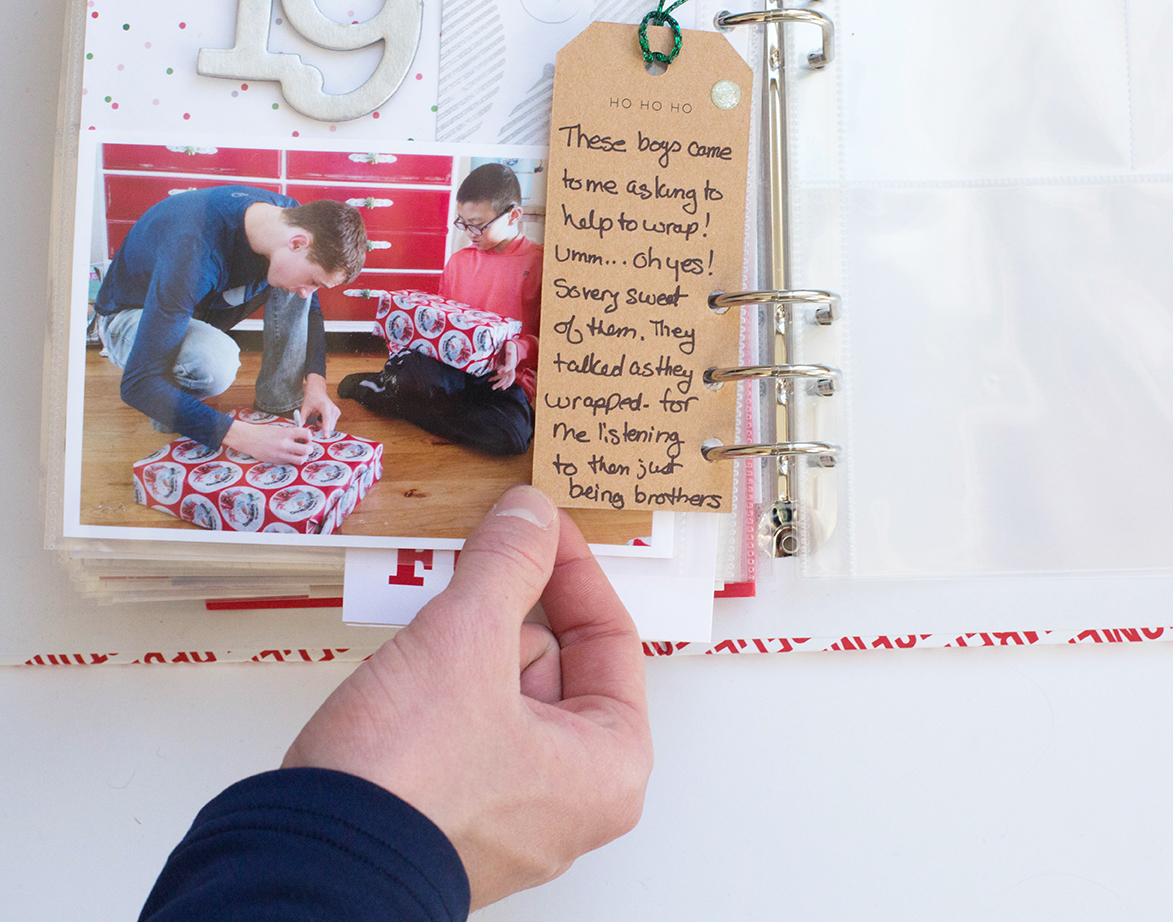 19
HO HO HO
These boys came
to me asking to
help to wrap!
Umm... Oh yes!
So very sweet
of them. They
talked as they
wrapped - for
me listening
to them just
being brothers
F